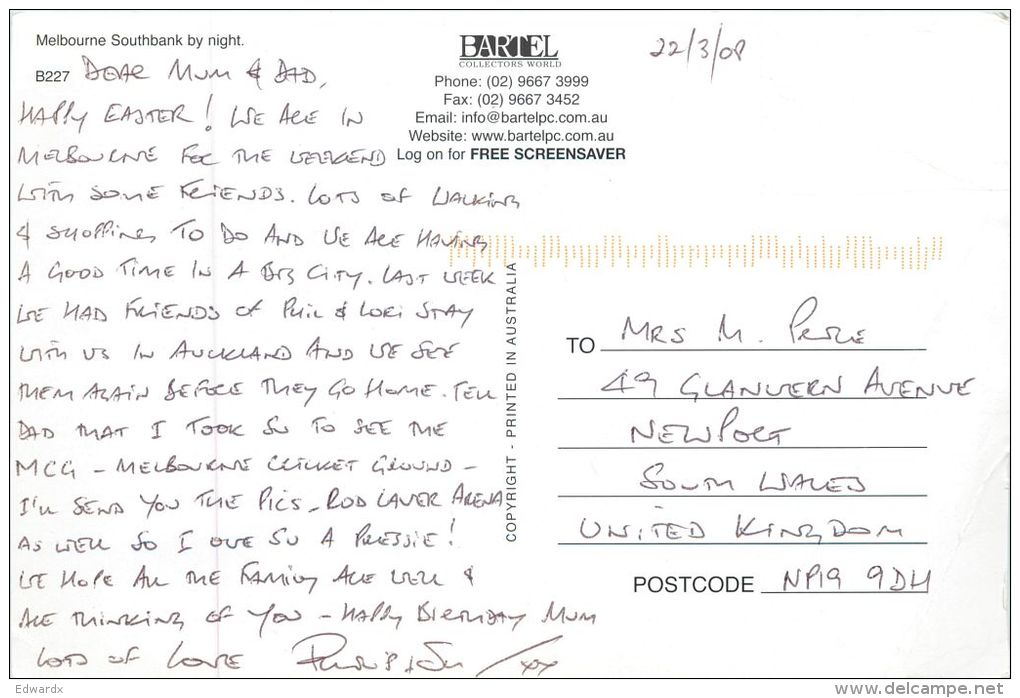 Melbourne Southbank by night.
B227
BARTEL
COLLECTORS WORLD
Phone: (02) 9667 3999
Fax: (02) 9667 3452
Email: info@bartelpc.com.au
Website: www.bartelpc.com.au
Log on for FREE SCREENSAVER
22/3/08
DEAR MUM & DAD,
HAPPY EASTER! WE ARE IN
MELBOURNE FOR THE WEEKEND
WITH SOME FRIENDS. LOTS OF WALKING
& SHOPPING TO DO AND WE ARE HAVING
A GOOD TIME IN A BIG CITY. LAST WEEK
WE HAD FRIENDS OF PHIL & LORI STAY
WITH US IN AUCKLAND AND WE SEE
THEM AGAIN BEFORE THEY GO HOME. TELL
DAD THAT I TOOK SU TO SEE THE
MCG - MELBOURNE CRICKET GROUND -
I'LL SEND YOU THE PICS - ROD LAVER ARENA
AS WELL SO I OWE SU A PRESSIE!
WE HOPE ALL THE FAMILY ARE WELL &
ARE THINKING OF YOU - HAPPY BIRTHDAY MUM
LOTS OF LOVE PHILIP & SU /xx
COPYRIGHT - PRINTED IN AUSTRALIA
TO MRS M.
49 GLANWERN AVENUE
NEWPORT
SOUTH WALES
UNITED KINGDOM
POSTCODE NP19 9DH
Edwardx
www.delcampe.net